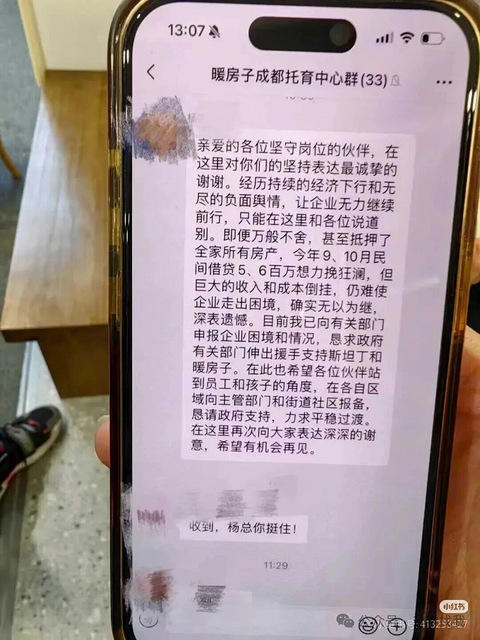 13:07
暖房子成都托育中心群(33)
亲爱的各位坚守岗位的伙伴，在
这里对你们的坚持表达最诚挚的
谢谢。经历持续的经济下行和无
尽的负面舆情，让企业无力继续
前行，只能在这里和各位说道
别。即便万般不舍，甚至抵押了
全家所有房产，今年9、10月民
间借贷5、6百万想力挽狂澜，但
巨大的收入和成本倒挂，仍难使
企业走出困境，确实无以为继，
深表遗憾。目前我已向有关部门
申报企业困境和情况，恳求政府
有关部门伸出援手支持斯坦丁和
暖房子。在此也希望各位伙伴站
到员工和孩子的角度，在各自区
域向主管部门和街道社区报备，
恳请政府支持，力求平稳过渡。
在这里再次向大家表达深深的谢
意，希望有机会再见。
收到，杨总你挺住！
11:29
小红书